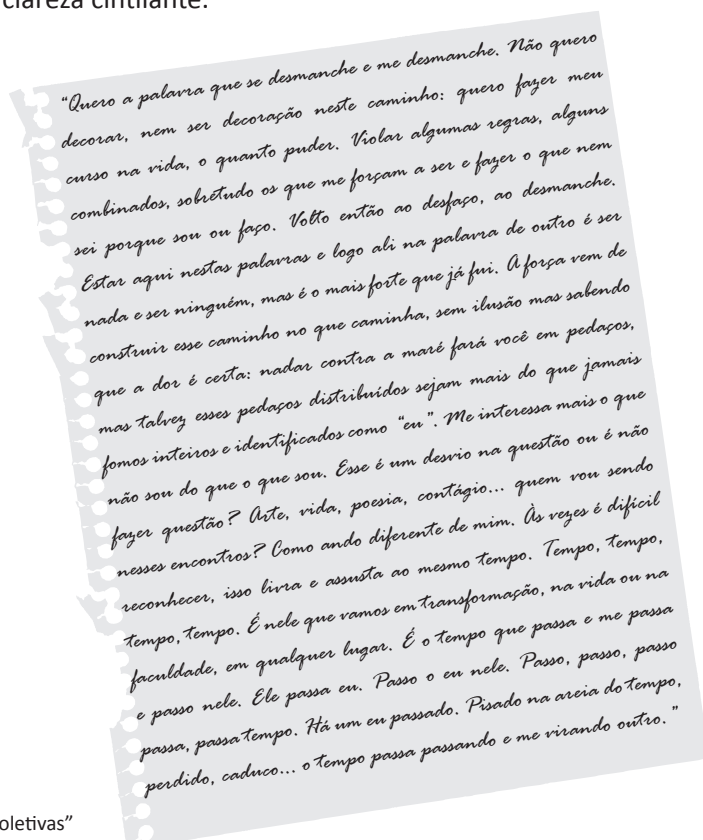 clareza cintilante.
"Quero a palavra que se desmanche e me desmanche. Não quero
decorar, nem ser decoração neste caminho: quero fazer meu
curso na vida, o quanto puder. Violar algumas regras, alguns
combinados, sobretudo os que me forçam a ser e fazer o que nem
sei porque sou ou faço. Volto então ao desfaço, ao desmanche.
Estar aqui nestas palavras e logo ali na palavra de outro é ser
nada e ser ninguém, mas é o mais forte que já fui. A força vem de
construir esse caminho no que caminha, sem ilusão mas sabendo
que a dor é certa: nadar contra a maré fará você em pedaços,
mas talvez esses pedaços distribuídos sejam mais do que jamais
fomos inteiros e identificados como "eu". Me interessa mais o que
não sou do que o que sou. Esse é um desvio na questão ou é não
fazer questão? Arte, vida, poesia, contágio... quem vou sendo
nesses encontros? Como ando diferente de mim. Às vezes é difícil
reconhecer, isso livra e assusta ao mesmo tempo. Tempo, tempo,
tempo, tempo. É nele que vamos em transformação, na vida ou na
faculdade, em qualquer lugar. É o tempo que passa e me passa
e passo nele. Ele passa eu. Passo o eu nele. Passo, passo, passo
passa, passa tempo. Há um eu passado. Pisado na areia do tempo,
perdido, caduco... o tempo passa passando e me virando outro."
oletivas"